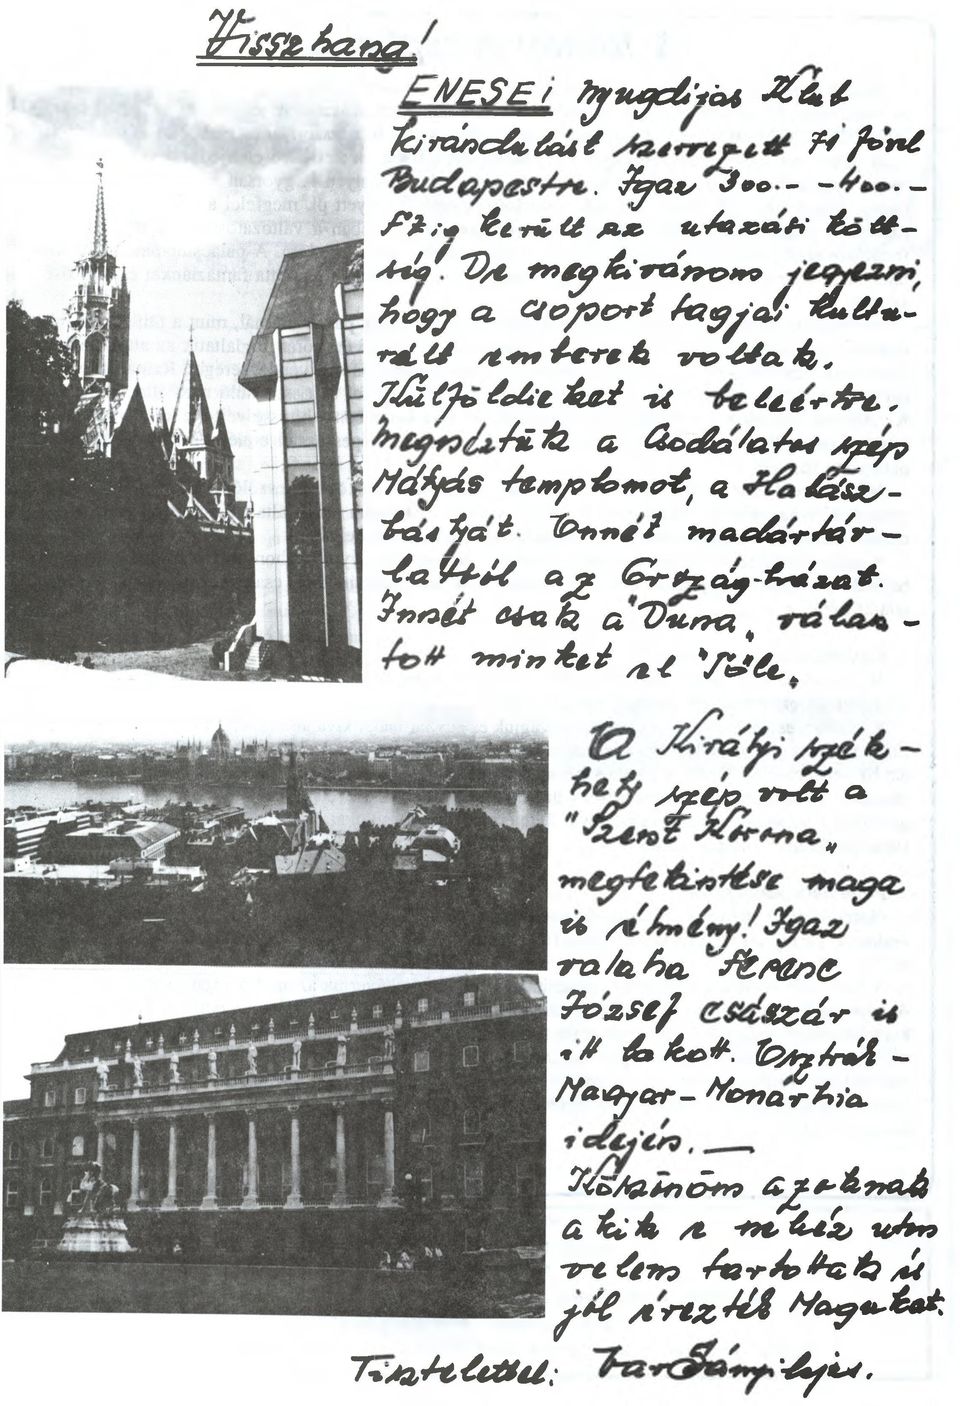 Visszhang!
ENESEi Nyugdijas Klub
kirándulást szervezett 71 fővel
Budapestre. Igaz 300.- -400.-
Ft,ig került az utazási költ-
ség. De megkivánom jegyezni,
hogy a csoport tagjai kultu-
rált emberek voltak.
Külföldieket is beleértve.
Megnéztük a Csodálatos szép
Mátyás templomot, a Halász-
bástyát. Onnét madártáv-
latból az Ország-házat.
Innét csak a "Duna" válasz-
tott minket el "Töle"
A Királyi szék-
hely szép volt a
"Szent Korona"
megtekintése maga
is élmény! Igaz
valaha Ferenc
József császár is
itt lakott. Osztrák-
Magyar-Monárhia
idején.—
Köszönöm azoknak
akik e nehéz uton
velem tartottak és
jól érezték Magukat.
Tisztelettel: